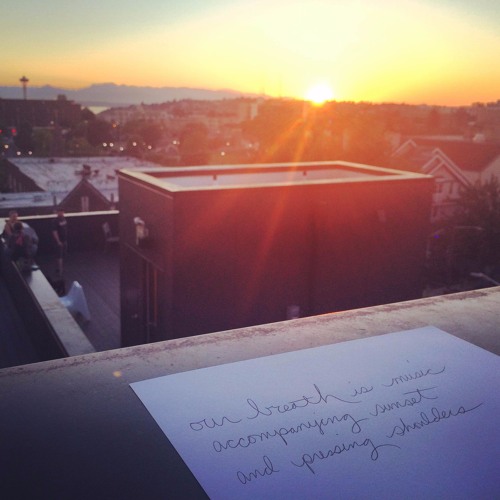 our breath is music
accompanying sunset
and pressing shoulders